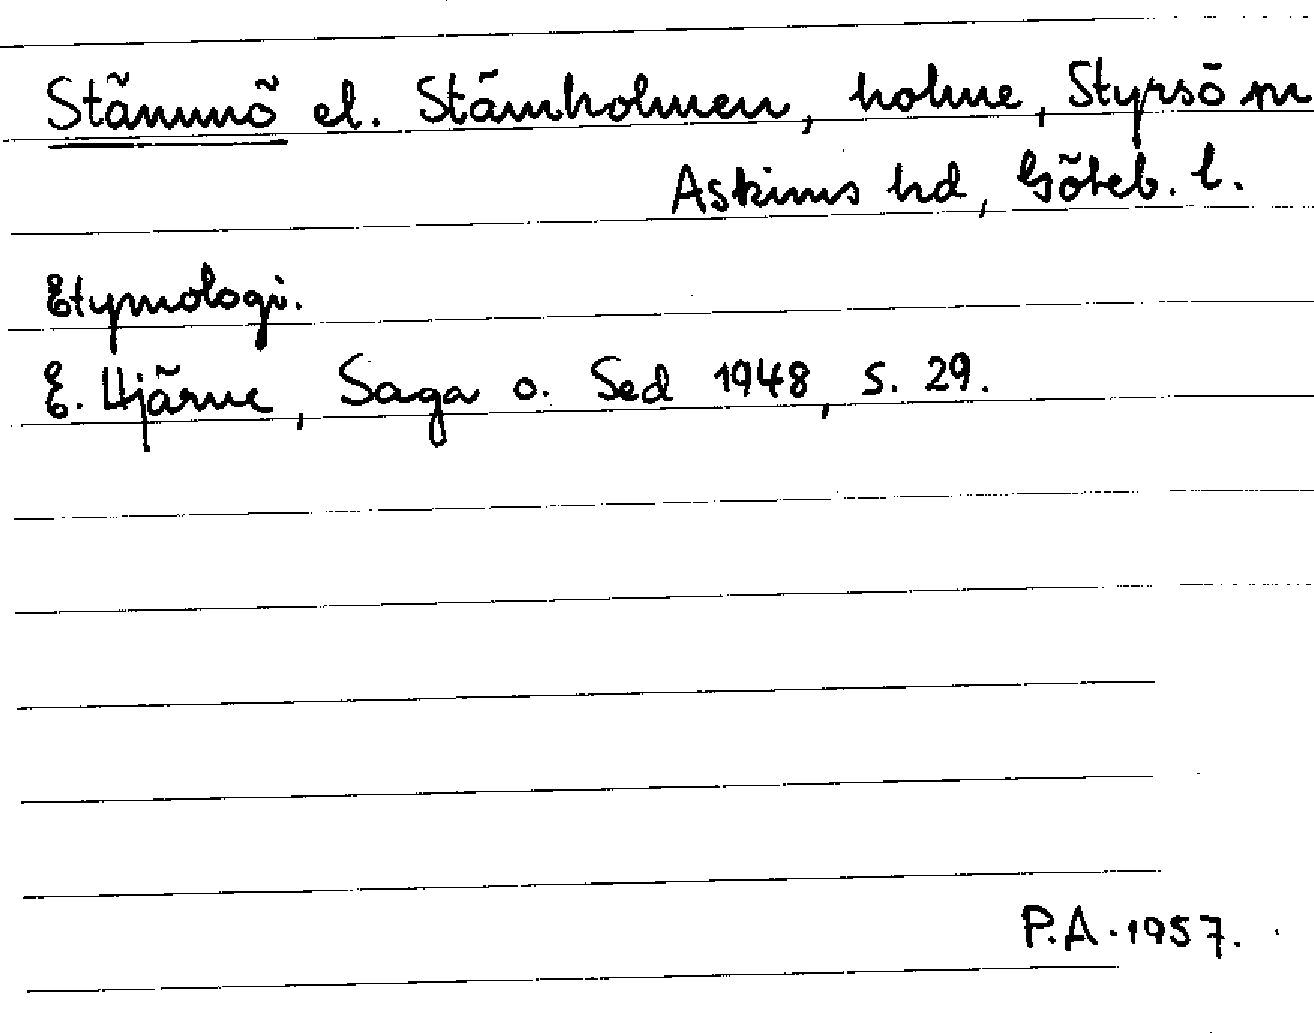 Stämmö el. Stämholmen, holme, Styrsö m
Askims hd, Göteb. l.
Etymologi.
E. Hjärne, Saga o. Sed 1948, s. 29.
P.A. 1957.